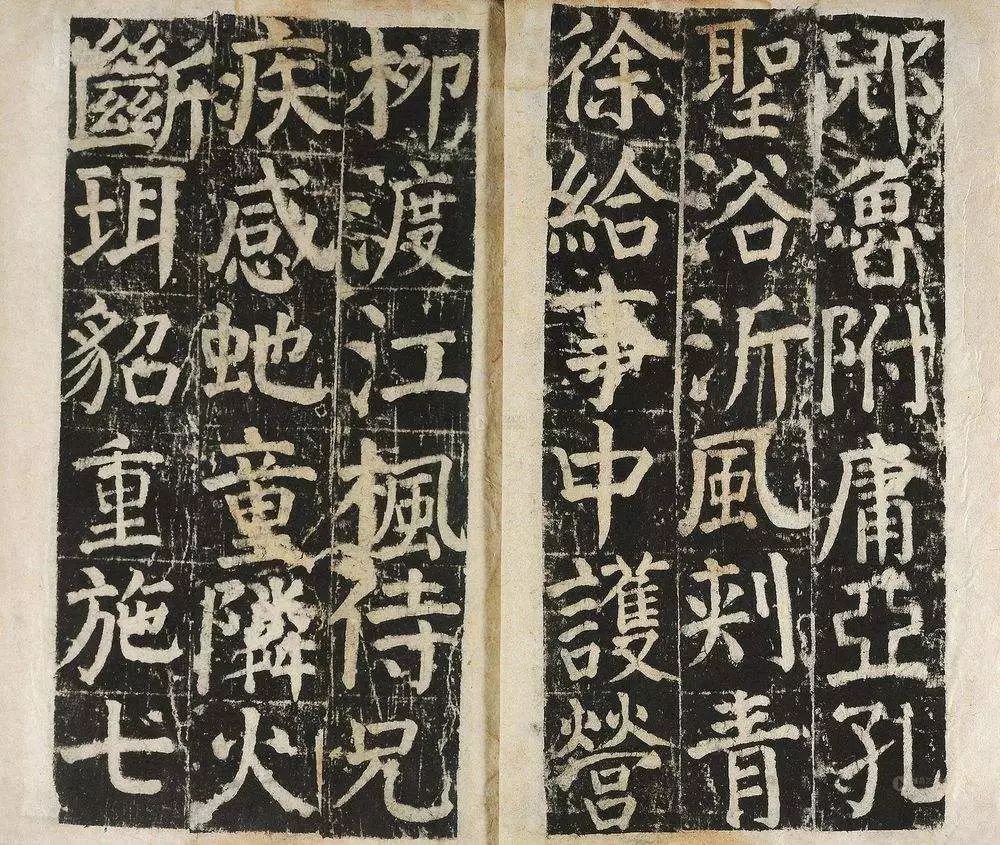 郳魯附庸亞孔
聖浴沂風刺青
徐給事中護營
柳渡江楓侍兄
疾感虵童隣火
斷珥貂重施